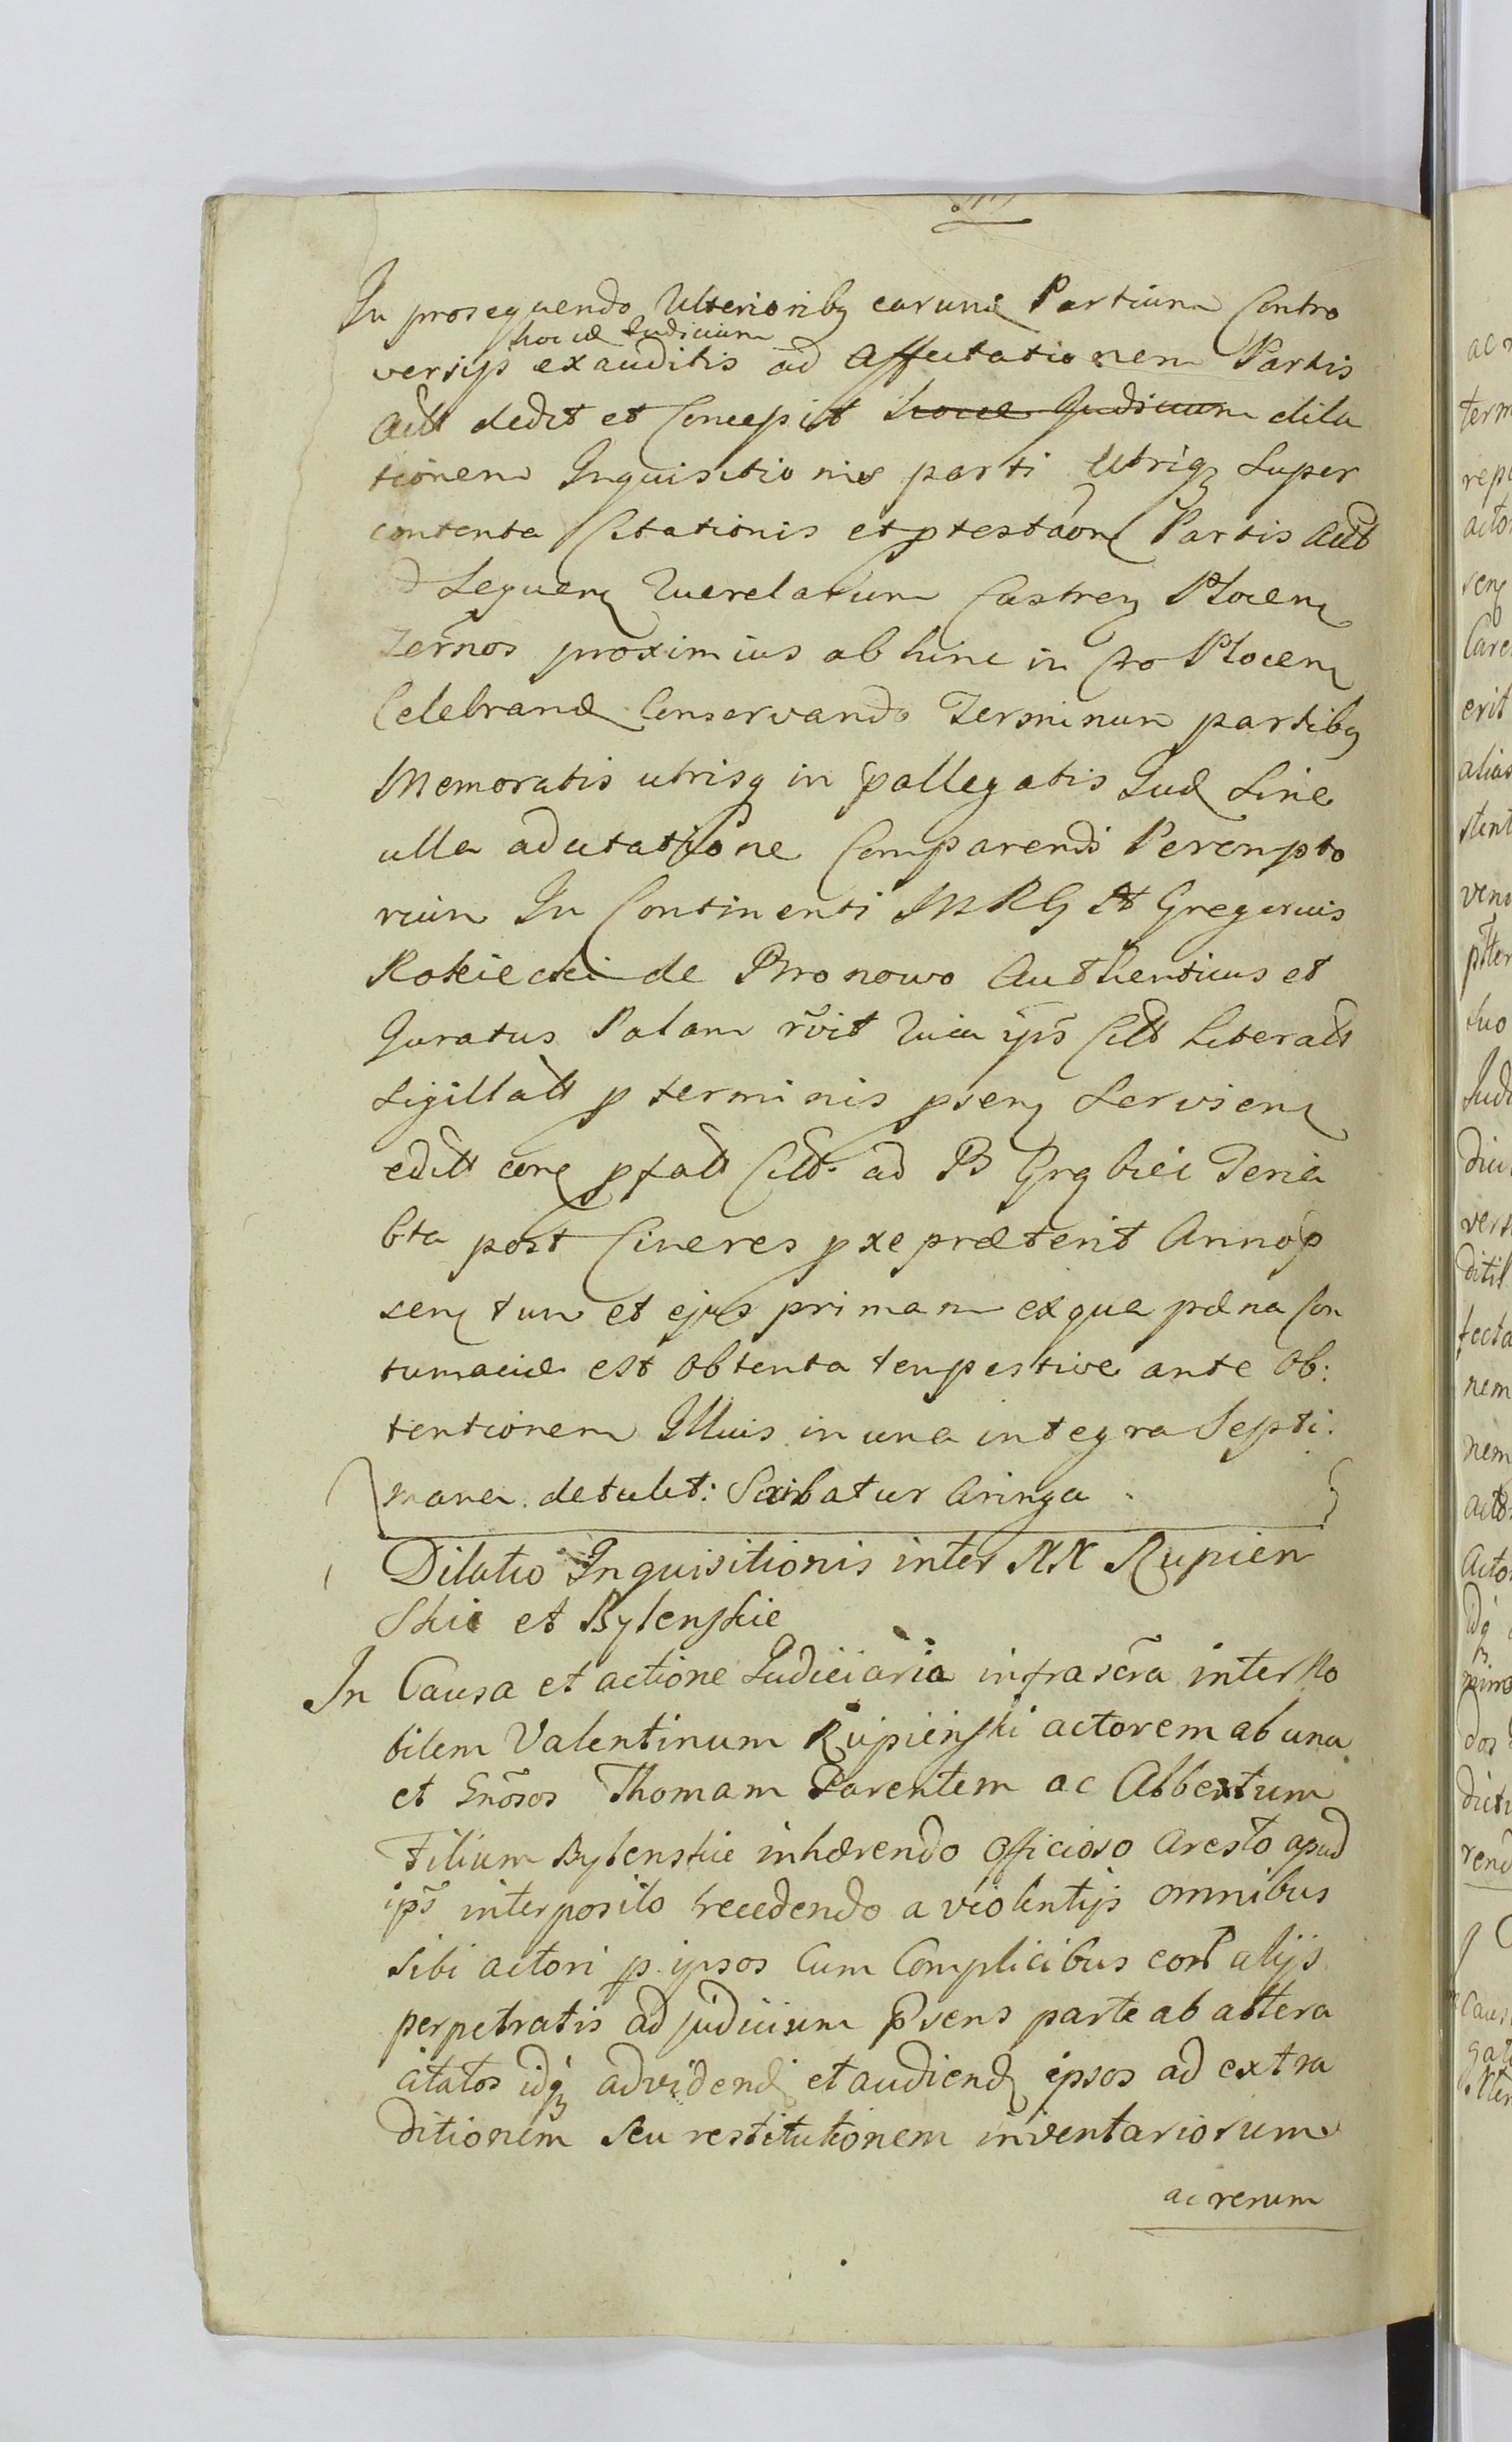 In prosequendo Ulterioribq earund Partium Contro
hocce Judicium
versijs exauditis ad affectationem Partis
Actt dedit et Concepit hocce Judicium dila
tionem Inquisitionis parti Utriqz super
contenta Citationis et ptestaõne Partis Actt
d Sequen Querelarum Castren Plocen
Terños proximius ab hinc in Cro Plocen
Celebrand Conservando Terminum partibq
Memoratis utrisq in pallegatis Jud sine
ulla adcitatione Comparendi Perempto
rium In Continenti MRG Gregorius
Rokiecki de Pronowo Authenticus et
Juratus Palam rvit quia ips Citt Literatt
Sigillatt p terminis psen Servien
editt core pfatt Citt. ad B Grg biei Feria
6ta post Cineres pxe præterit Anno p
sen tun et ejus primam ex qua pæna Con
tumaciæ est obtenta tempestive ante Ob:
tentionem Illius in una integra Septi:
mana. detulit: Scribatur Aringa.
Dilatio Inquisitionis inter NN Rupien
skie et Bylenskie
In Causa et actione Judiciaria infrascra inter No
bilem Valentinum Rupienski actorem ab una
et Gnõsos Thomam Parentem ac Albertum
Filium Bylenskie inhærendo officioso Aresto apud
ips interposito recedendo a violentijs omnibus
sibi actori p. ipsos Cum Complicibus cort alijs
perpetratis ad judicium psens parte ab altera
citatos idqz ad vidend et audiend ipsos ad extra
ditionem seu restitutionem inventariorum
ac rerum